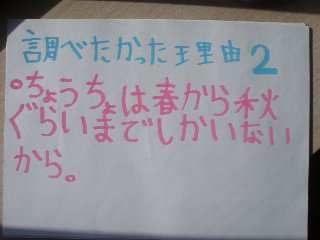 調べたかった理由2
°ちょうちょは春から秋
ぐらいまでしかいない
から。